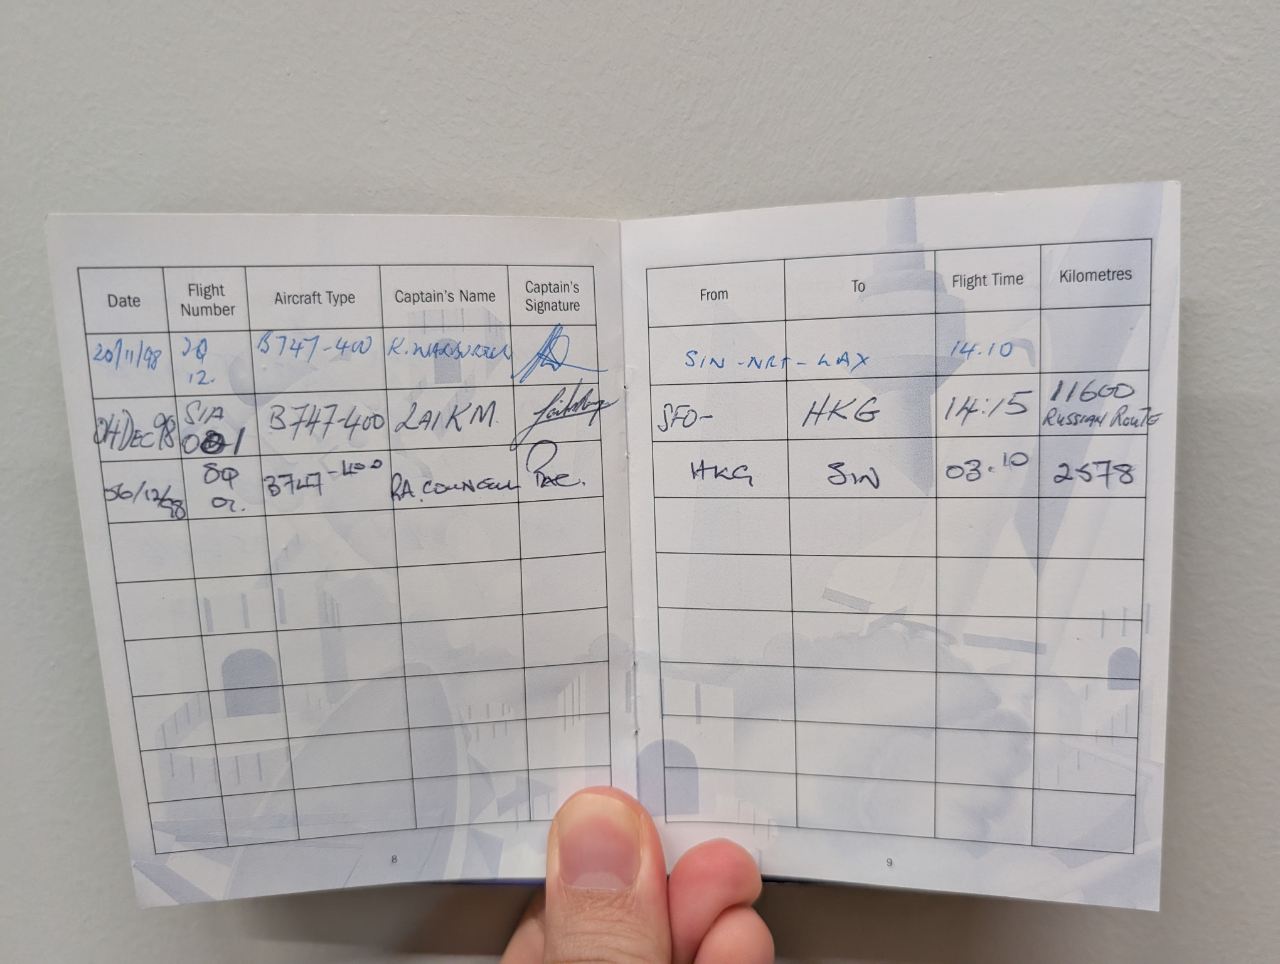 Date Flight Number Aircraft Type Captain's Name Captain's Signature From To Flight Time Kilometres
20/11/98 SQ 12. B747-400 SIN-NRT-LAX 14.10
04 DEC 98 SIA 001 B747-400 LAI KM. SFO- HKG 14:15 11600 RUSSIAN ROUTE
06/12/98 SQ 01. B747-400 HKG SIN 03.10 2578
8
9